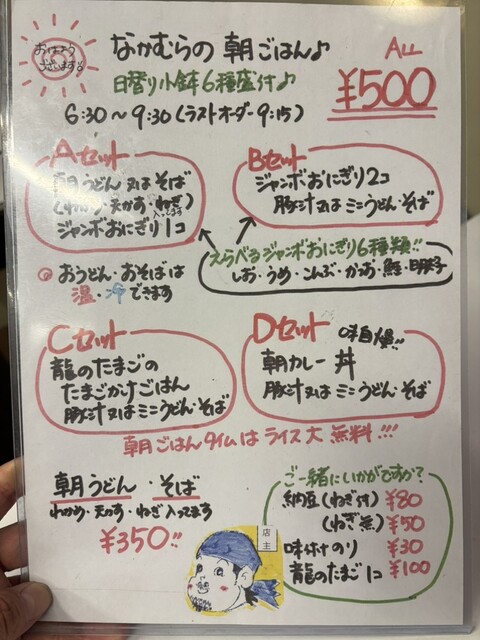 おはようございます
なかむらの 朝ごはん♪
日替り小鉢6種盛付♪
6:30～9:30(ラストオーダー9:15)
ALL
¥500
Aセット
朝うどん又はそば
(わかめ・天かす・ねぎ入ってます)
ジャンボおにぎり1コ
Bセット
ジャンボおにぎり2コ
豚汁又はミニうどん・そば
えらべるジャンボおにぎり6種類!!
しお・うめ・こんぶ・かつお・鮭・明太子
◎おうどん・おそばは
温・冷できます
Cセット
龍のたまごの
たまごかけごはん
豚汁又はミニうどん・そば
Dセット 味自慢!!
朝カレー丼
豚汁又はミニうどん・そば
朝ごはんタイムはライス大無料!!!
朝うどん・そば
わかめ・天かす・ねぎ入ってます
¥350!!
ご一緒にいかがですか?
納豆(ねぎ付) ¥80
(ねぎ無) ¥50
味付けのり ¥30
龍のたまご1コ ¥100
店主